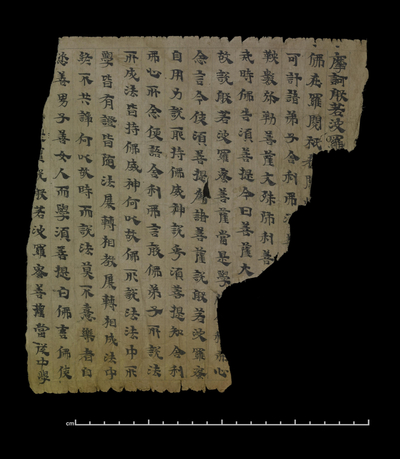 摩訶般若波羅
佛在羅閱祇
可計諸弟子舍利弗須
鞅數弥勒菩薩文殊師利菩
戒時佛告須菩提今日菩薩大
故說般若波羅蜜菩薩當是學 心
念言今使須菩提為諸菩薩說般若波羅蜜
自用力說耶持佛威神說乎須菩提知舍利
弗心所念便語舍利弗言敢佛弟子所說法
所成法皆持佛威神何以故佛所說法法中所
學皆有證皆隨法展轉相教展轉相成法中
終不共諍何以故時而說法莫不喜樂者自
恣善男子善女人而學須菩提白佛言佛使
說般若波羅蜜菩薩當從中學
cm